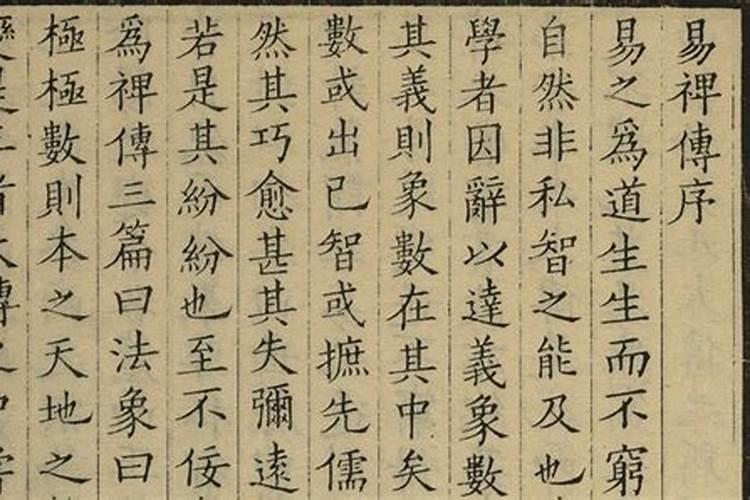 易裨傳序
易之爲道生生而不窮
自然非私智之能及也
學者因辭以達義象數
其義則象數在其中矣
數或出己智或摭先儒
然其巧愈甚其失彌遠
若是其紛紛也至不佞
爲裨傳三篇曰法象曰
極極數則本之天地之